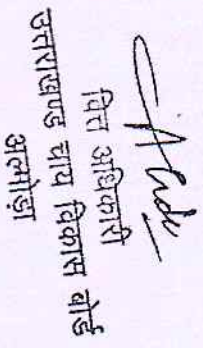 वित्त अधिकारी
उत्तराखण्ड चाय विकास बोर्ड
अल्मोड़ा